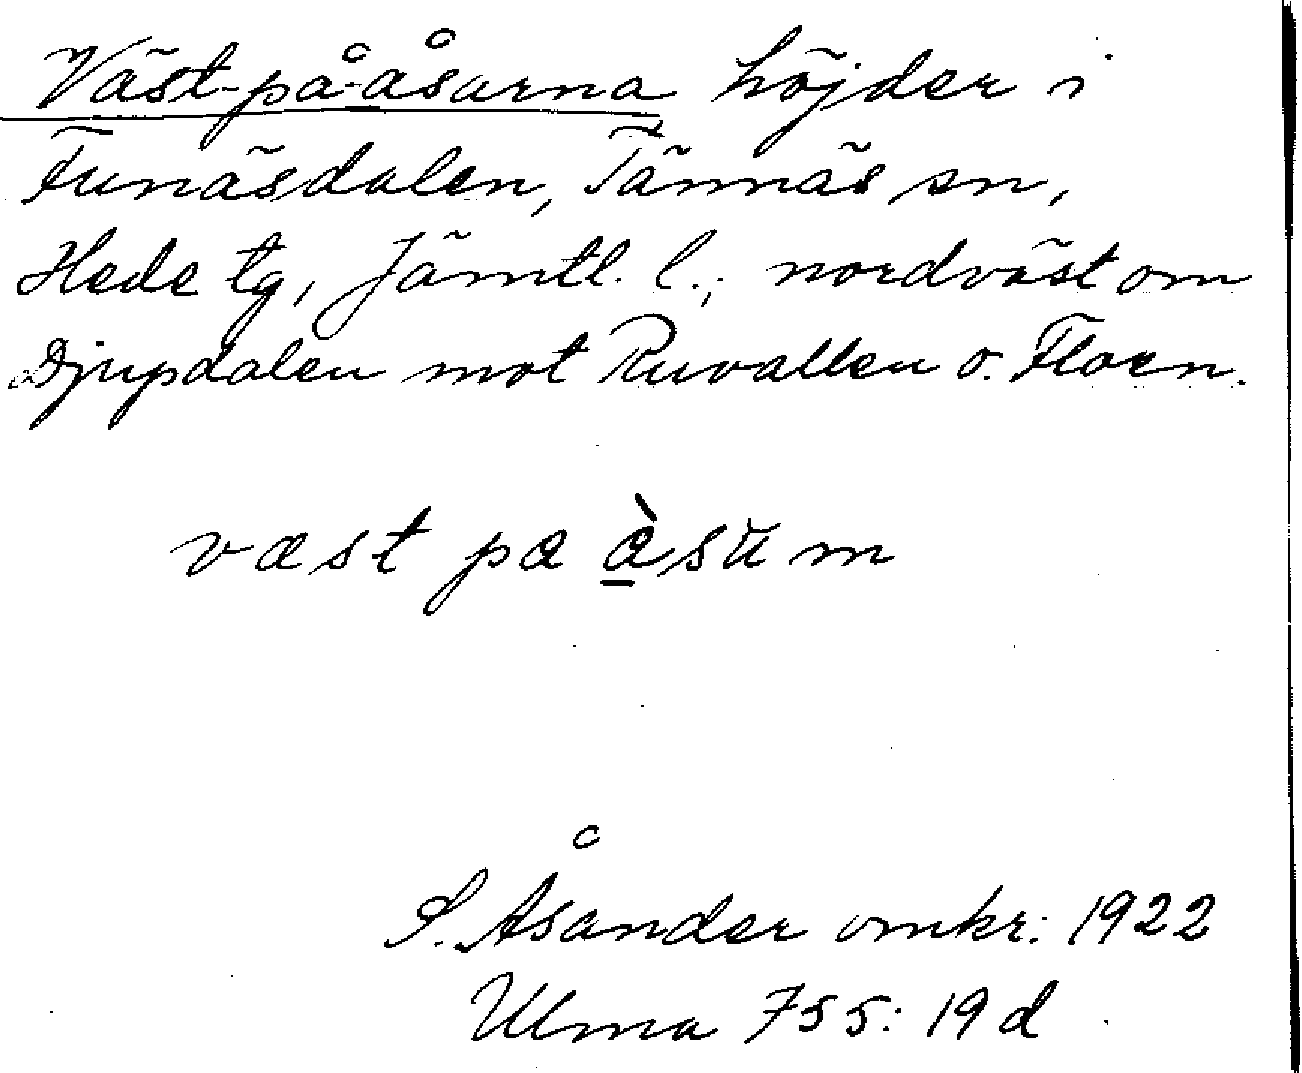 Väst-på-åsarna höjder i
Funäsdalen, Tännäs sn,
Hede tg, Jämtl. l.; nordväst om
Djupdalen mot Ruvallen o. Floen.
væst pa àsŭm
S. Åsander omkr. 1922
Ulma 755: 19 d